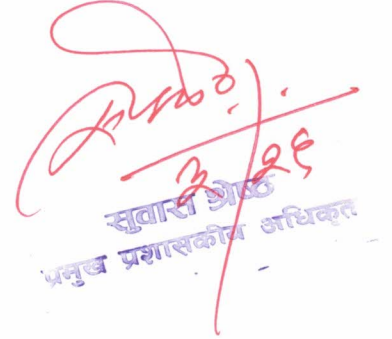 ३/२९
सुवास श्रेष्ठ
प्रमुख प्रशासकीय अधिकृत